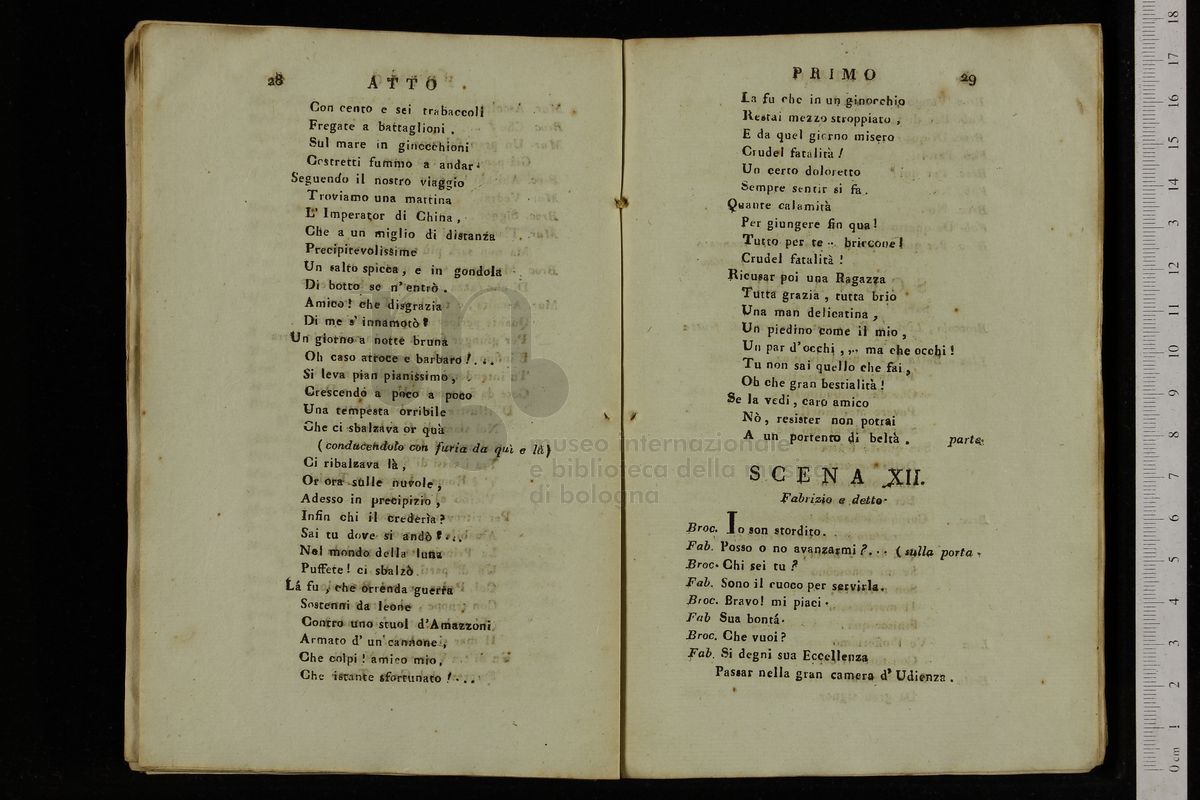 28 ATTO
Con cento e sei trabaccoli
Fregate a battaglioni .
Sul mare in ginocchioni
Costretti fummo a andar.
Seguendo il nostro viaggio
Troviamo una mattina
L' Imperator di China ,
Che a un miglio di distanza
Precipitevolissime
Un salto spicca, e in gondola
Di botto se n' entrò .
Amico! che disgrazia
Di me s' innamorò?
Un giorno a notte bruna
Oh caso atroce e barbaro! . . .
Si leva pian pianissimo ,
Crescendo a poco a poco
Una tempesta orribile
Che ci sbalzava or quà
(conducendolo con furia da quì e là)
Ci ribalzava là ,
Or ora sulle nuvole ,
Adesso in precipizio ,
Infin chi il crederìa?
Sai tu dove si andò? . . .
Nel mondo della luna
Puffete! ci sbalzò.
Lá fu , che orrenda guerra
Sostenni da leone
Contro uno stuol d'Amazzoni
Armato d' un' cannone ,
Che colpi! amico mio,
Che istante sfortunato ! . . .
PRIMO 29
La fu che in un ginocchio
Restai mezzo stroppiato ,
E da quel giorno misero
Crudel fatalità!
Un certo doloretto
Sempre sentir si fa.
Quante calamità
Per giungere fin qua!
Tutto per te .. briccone!
Crudel fatalità !
Ricusar poi una Ragazza
Tutta grazia , tutta briò
Una man delicatina ,
Un piedino come il mio ,
Un par d'occhi , ,.. ma che occhi !
Tu non sai quello che fai ,
Oh che gran bestialità!
Se la vedi , caro amico
Nò , resister non potrai
A un portento di beltà . parte.
SCENA XII.
Fabrizio e detto.
Broc. Io son stordito.
Fab. Posso o no avanzarmi?. . . (sulla porta.
Broc. Chi sei tu?
Fab. Sono il cuoco per servirla.
Broc. Bravo! mi piaci.
Fab Sua bontá.
Broc. Che vuoi?
Fab. Si degni sua Eccellenza
Passar nella gran camera d' Udienza .
museo internazionale
e biblioteca della musica
di bologna
0 cm 1 2 3 4 5 6 7 8 9 10 11 12 13 14 15 16 17 18